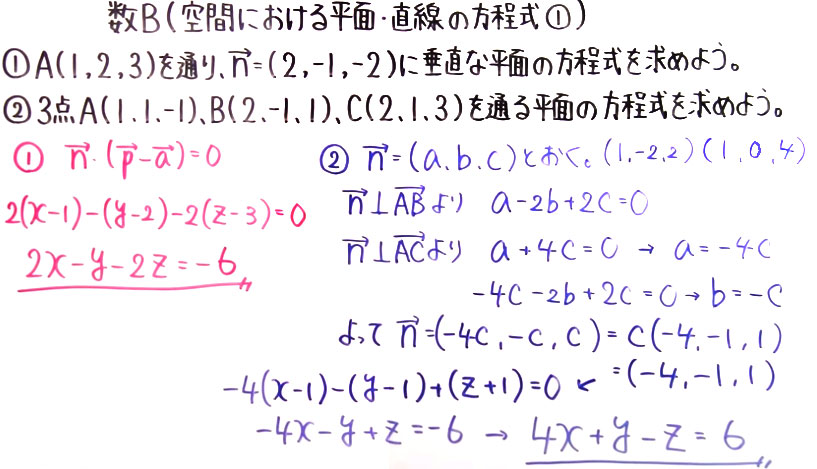 数B(空間における平面・直線の方程式①)
①A(1,2,3)を通り、n→=(2,-1,-2)に垂直な平面の方程式を求めよう。
②3点A(1.1.-1)、B(2.-1,1)、C(2,1.3)を通る平面の方程式を求めよう。
① n→・(p→-a→)=0
2(x-1)-(y-2)-2(z-3)=0
2x-y-2z=-6
② n→=(a.b.c)とおく。(1,-2,2)(1,0,4)
n→⊥AB→より a-2b+2c=0
n→⊥AC→より a+4c=0 → a=-4c
-4c-2b+2c=0→b=-c
よって n→=(-4c,-c,c)=c(-4,-1,1)
=(-4,-1,1)
-4(x-1)-(y-1)+(z+1)=0 ↙
-4x-y+z=-6 → 4x+y-z=6